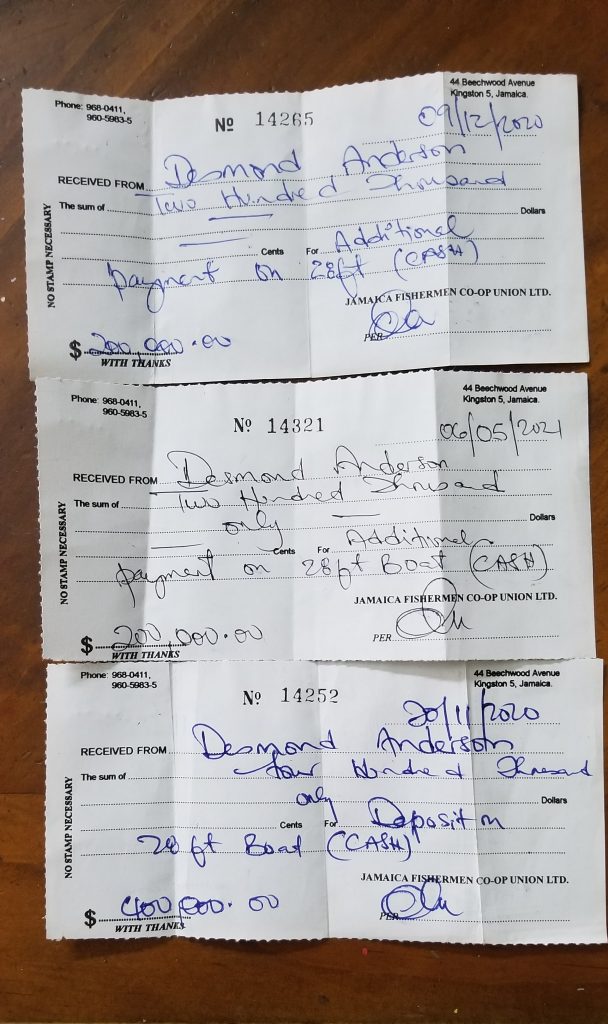 Phone: 968-0411,
960-5983-5
44 Beechwood Avenue
Kingston 5, Jamaica.
Nº 14265
09/12/2020
RECEIVED FROM Desmond Anderson
The sum of Two Hundred Thousand
Dollars
Cents For Additional
payment on 28ft (CASH)
JAMAICA FISHERMEN CO-OP UNION LTD.
PER
$ 200,000.00
WITH THANKS
NO STAMP NECESSARY
Phone: 968-0411,
960-5983-5
44 Beechwood Avenue
Kingston 5, Jamaica.
Nº 14321
06/05/2021
RECEIVED FROM Desmond Anderson
The sum of Two Hundred Thousand
only Dollars
Cents For Additional
payment on 28ft Boat (CASH)
JAMAICA FISHERMEN CO-OP UNION LTD.
PER
$ 200,000.00
WITH THANKS
NO STAMP NECESSARY
Phone: 968-0411,
960-5983-5
44 Beechwood Avenue
Kingston 5, Jamaica.
Nº 14252
20/11/2020
RECEIVED FROM Desmond Anderson
The sum of four Hundred Thousand
only Dollars
Cents For Deposit on
28 ft Boat (CASH)
JAMAICA FISHERMEN CO-OP UNION LTD.
PER
$ 400,000.00
WITH THANKS
NO STAMP NECESSARY